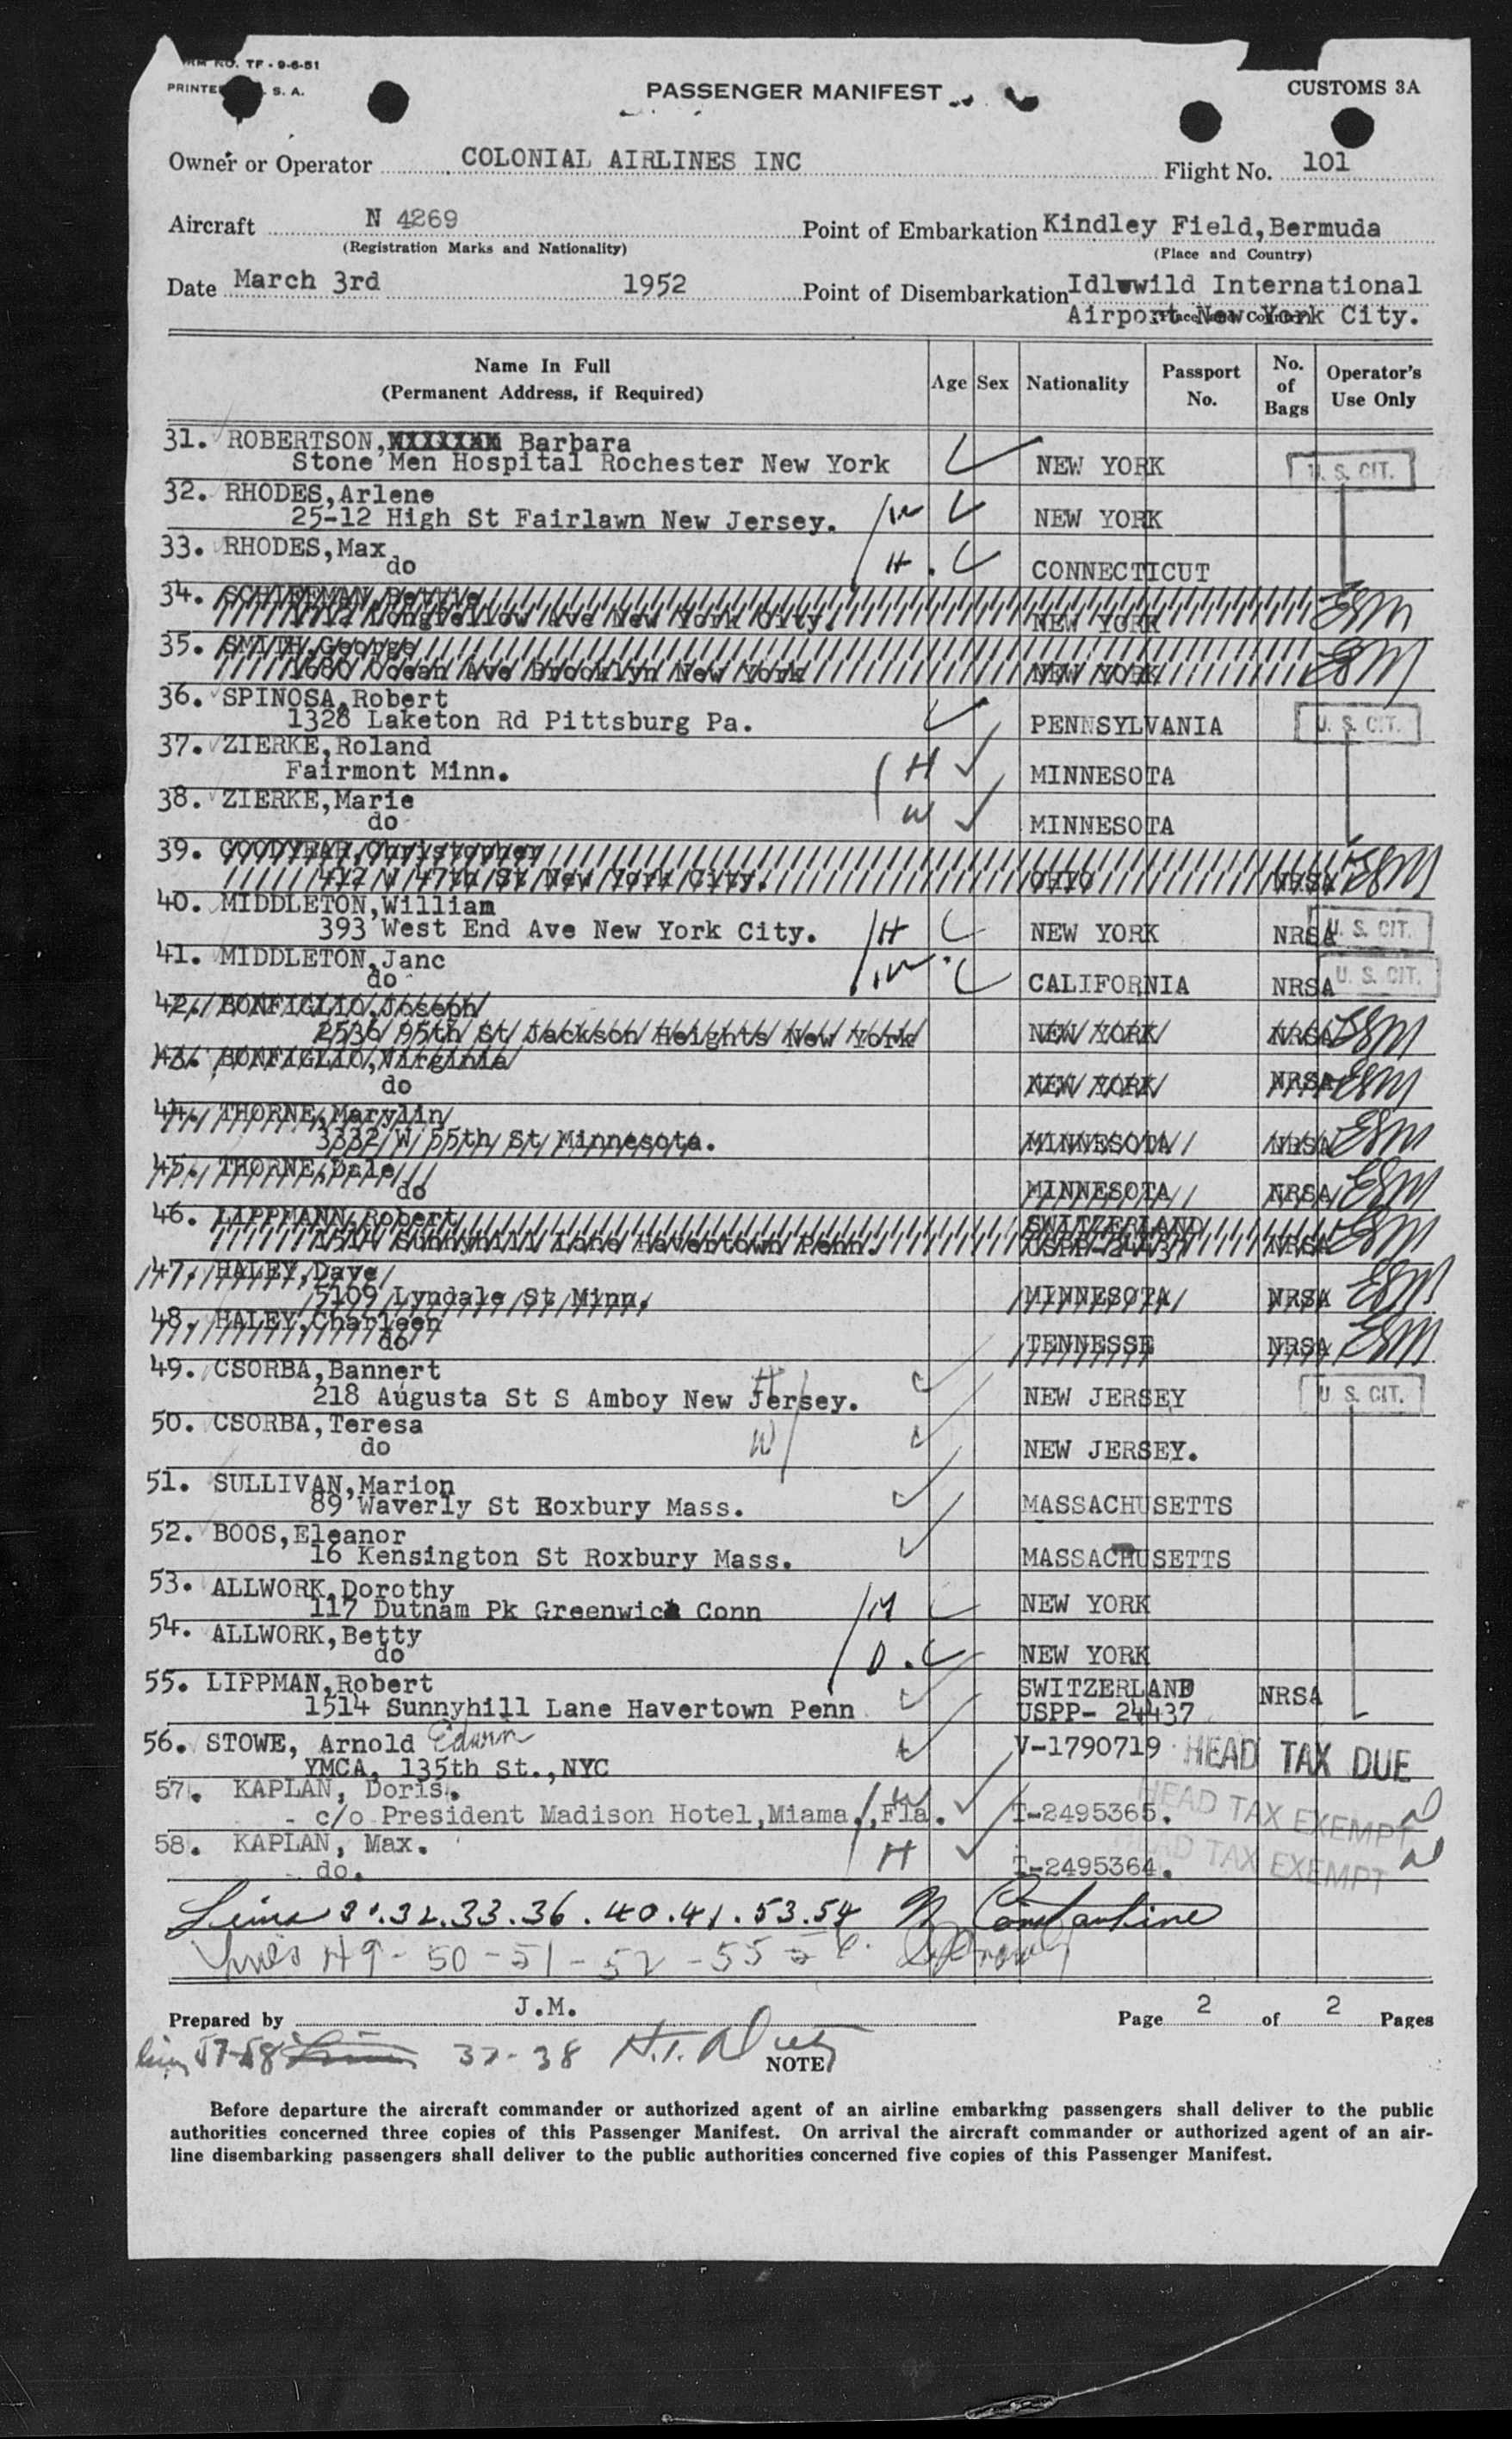 TF - 9-6-51
S. A.
PASSENGER MANIFEST
CUSTOMS 3A
Owner or Operator COLONIAL AIRLINES INC
Flight No. 101
Aircraft N 4269
(Registration Marks and Nationality)
Point of Embarkation Kindley Field,Bermuda
(Place and Country)
Date March 3rd 1952
Point of Disembarkation Idlewild International
Airport New York City.
Name In Full
(Permanent Address, if Required)
Age Sex Nationality Passport No. No. of Bags Operator's Use Only
31. ROBERTSON, Barbara
Stone Men Hospital Rochester New York NEW YORK U. S. CIT.
32. RHODES,Arlene
25-12 High St Fairlawn New Jersey. W NEW YORK
33. RHODES,Max
do H CONNECTICUT
34. SCHIFFMAN,Bettie
Longfellow Ave New York City. NEW YORK ESM
35. SMITH,George
1680 Ocean Ave Brooklyn New York NEW YORK ESM
36. SPINOSA,Robert
1328 Laketon Rd Pittsburg Pa. PENNSYLVANIA U. S. CIT.
37. ZIERKE,Roland
Fairmont Minn. H MINNESOTA
38. ZIERKE,Marie
do W MINNESOTA
39. GOODYEAR,Christopher
412 W 47th St New York City. OHIO NRSA ESM
40. MIDDLETON,William
393 West End Ave New York City. H NEW YORK NRSA U. S. CIT.
41. MIDDLETON,Janc
do W CALIFORNIA NRSA U. S. CIT.
42. BONFIGLIO,Joseph
2536 95th St Jackson Heights New York NEW YORK NRSA ESM
43. BONFIGLIO,Virginia
do NEW YORK NRSA ESM
44. THORNE,Marylin
3332 W 55th St Minnesota. MINNESOTA NRSA ESM
45. THORNE,Dale
do MINNESOTA NRSA ESM
46. LIPPMANN,Robert SWITZERLAND
1514 Sunnyhill Lane Havertown Penn. USPP-24437 NRSA ESM
47. HALEY,Dave
5109 Lyndale St Minn. MINNESOTA NRSA ESM
48. HALEY,Charleen
do TENNESSE NRSA ESM
49. CSORBA,Bannert
218 Augusta St S Amboy New Jersey. H NEW JERSEY U S. CIT.
50. CSORBA,Teresa
do W NEW JERSEY.
51. SULLIVAN,Marion
89 Waverly St Roxbury Mass. MASSACHUSETTS
52. BOOS,Eleanor
16 Kensington St Roxbury Mass. MASSACHUSETTS
53. ALLWORK,Dorothy
117 Dutnam Pk Greenwich Conn M NEW YORK
54. ALLWORK,Betty
do D NEW YORK
55. LIPPMAN,Robert SWITZERLAND NRSA
1514 Sunnyhill Lane Havertown Penn USPP- 24437
56. STOWE, Arnold Edwin V-1790719 HEAD TAX DUE
YMCA, 135th St.,NYC
57. KAPLAN, Doris.
c/o President Madison Hotel,Miama,,Fla. W T-2495365. HEAD TAX EXEMPT
58. KAPLAN, Max.
do. H T-2495364. HEAD TAX EXEMPT
Lines 31.32.33.36.40.41.53.54 Constantine
Lines 49-50-51-52-55-56.
Prepared by J.M.
Page 2 of 2 Pages
57-58 37-38
NOTE
Before departure the aircraft commander or authorized agent of an airline embarking passengers shall deliver to the public
authorities concerned three copies of this Passenger Manifest. On arrival the aircraft commander or authorized agent of an air-
line disembarking passengers shall deliver to the public authorities concerned five copies of this Passenger Manifest.